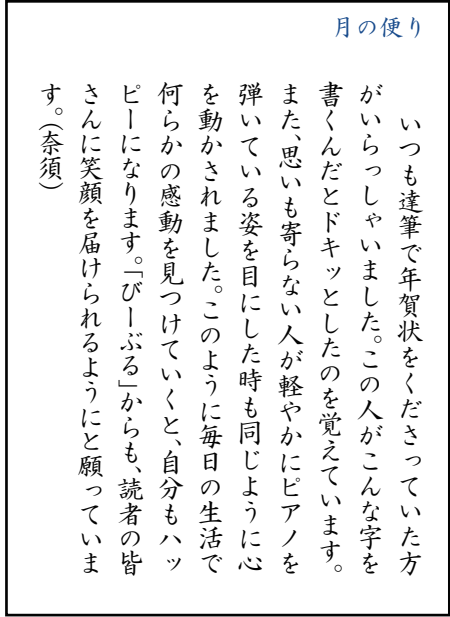 月の便り
いつも達筆で年賀状をくださっていた方
がいらっしゃいました。この人がこんな字を
書くんだとドキッとしたのを覚えています。
また、思いも寄らない人が軽やかにピアノを
弾いている姿を目にした時も同じように心
を動かされました。このように毎日の生活で
何らかの感動を見つけていくと、自分もハッ
ピーになります。「びーぶる」からも、読者の皆
さんに笑顔を届けられるようにと願っていま
す。(奈須)